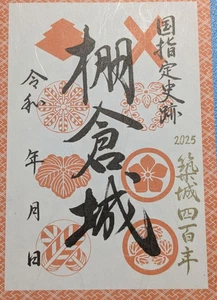 国指定史跡
棚倉城
2025
築城四百年
令和 年 月 日